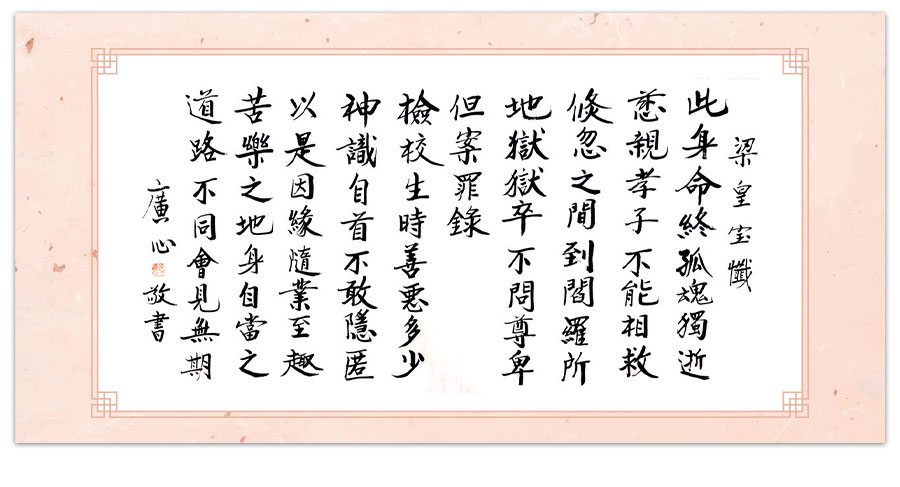 梁皇宝懺
此身命終孤魂獨逝
慈親孝子不能相救
倏忽之間到閻羅所
地獄獄卒不問尊卑
但案罪錄
檢校生時善惡多少
神識自首不敢隱匿
以是因緣隨業至趣
苦樂之地身自當之
道路不同會見無期
廣心
敬書